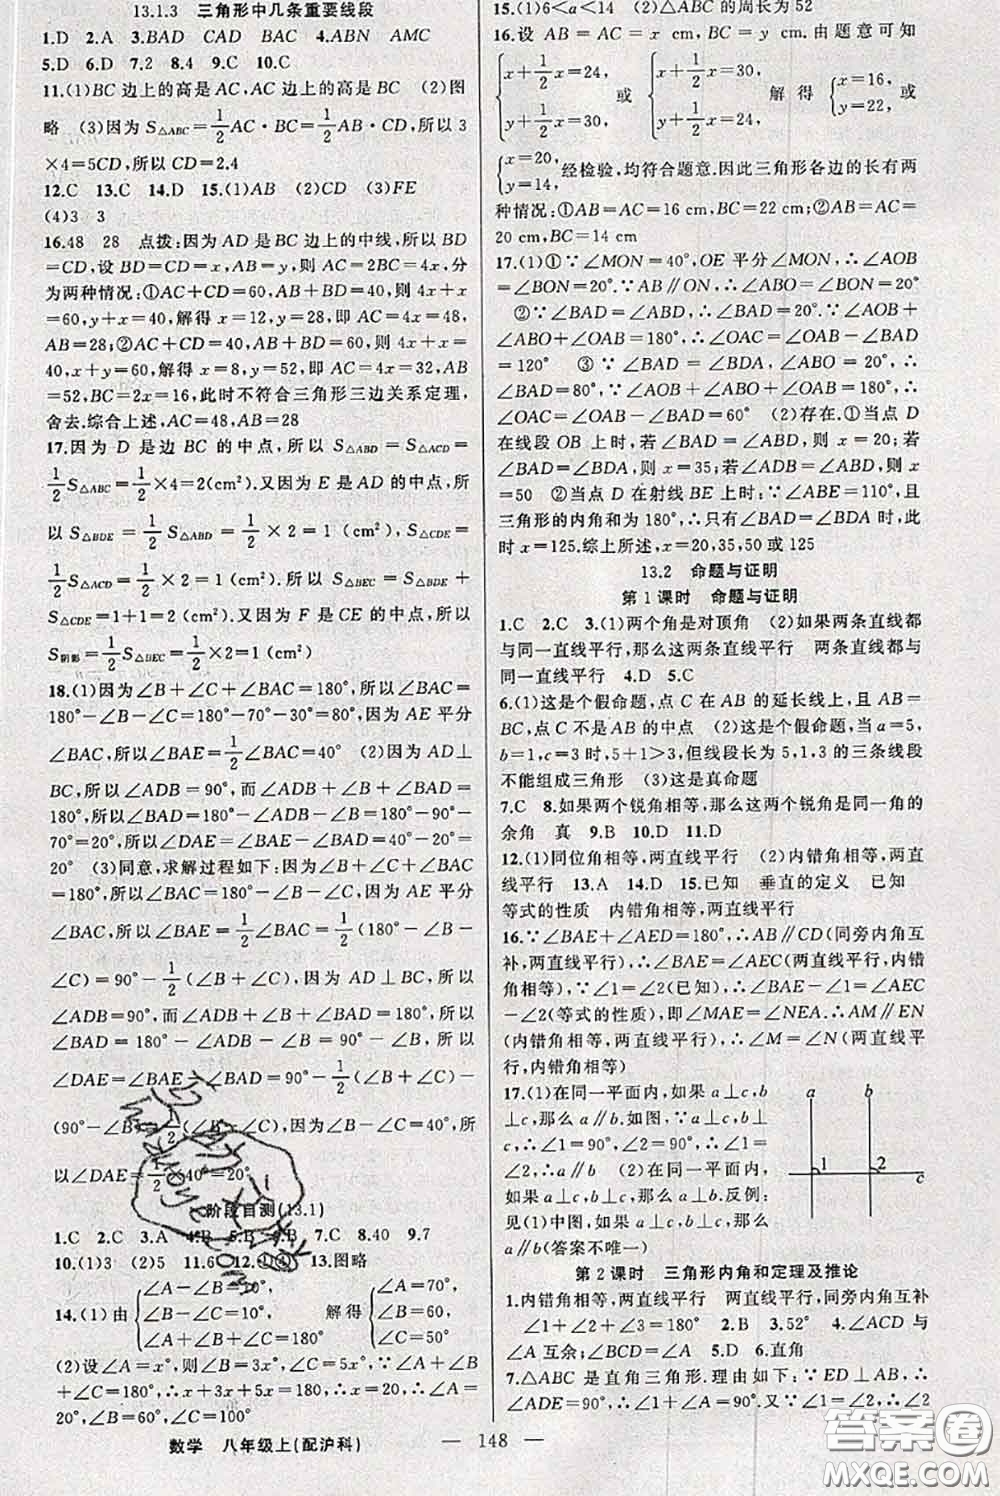 13.1.3 三角形中几条重要线段
1.D 2.A 3.BAD CAD BAC 4.ABN AMC
5.D 6.D 7.2 8.4 9.C 10.C
11.(1)BC边上的高是AC,AC边上的高是BC (2)图
略 (3)因为S△ABC=1/2AC·BC=1/2AB·CD,所以3
×4=5CD,所以CD=2.4
12.C 13.C 14.D 15.(1)AB (2)CD (3)FE
(4)3 3
16.48 28 点拨:因为AD是BC边上的中线,所以BD
=CD,设BD=CD=x,AB=y,则AC=2BC=4x,分
为两种情况:①AC+CD=60,AB+BD=40,则4x+x
=60,y+x=40,解得x=12,y=28,即AC=4x=48,
AB=28;②AC+CD=40,AB+BD=60,则4x+x=
40,x+y=60,解得x=8,y=52,即AC=4x=32,AB
=52,BC=2x=16,此时不符合三角形三边关系定理,
舍去.综合上述,AC=48,AB=28
17.因为D是边BC的中点,所以S△ABD=S△ACD=
1/2S△ABC=1/2×4=2(cm²).又因为E是AD的中点,所
以S△BDE=1/2S△ABD=1/2×2=1(cm²),S△CDE=
1/2S△ACD=1/2×2=1(cm²).所以S△BEC=S△BDE+
S△CDE=1+1=2(cm²).又因为F是CE的中点,所以
S阴影=1/2S△BEC=1/2×2=1(cm²)
18.(1)因为∠B+∠C+∠BAC=180°,所以∠BAC=
180°-∠B-∠C=180°-70°-30°=80°,因为AE平分
∠BAC,所以∠BAE=1/2∠BAC=40° (2)因为AD⊥
BC,所以∠ADB=90°,而∠ADB+∠B+∠BAD=
180°,所以∠BAD=180°-∠ADB-∠B=180°-90°-
70°=20°,所以∠DAE=∠BAE-∠BAD=40°-20°=
20° (3)同意,求解过程如下:因为∠B+∠C+∠BAC
=180°,所以∠BAC=180°-∠B-∠C,因为AE平分
∠BAC,所以∠BAE=1/2∠BAC=1/2(180°-∠B-
∠C)=90°-1/2(∠B+∠C),因为AD⊥BC,所以
∠ADB=90°,而∠ADB+∠B+∠BAD=180°,所以
∠BAD=180°-∠ADB-∠B=90°-∠B,所以
∠DAE=∠BAE-∠BAD=90°-1/2(∠B+∠C)-
(90°-∠B)=1/2(∠B-∠C),因为∠B-∠C=40°,所
以∠DAE=1/2×40°=20°
阶段自测(13.1)
1.C 2.C 3.A 4.B 5.B 6.B 7.C 8.40 9.7
10.(1)3 (2)5 11.6 13.图略
14.(1)由{∠A-∠B=10°, ∠B-∠C=10°, ∠A+∠B+∠C=180° 解得{∠A=70°, ∠B=60, ∠C=50
(2)设∠A=x°,则∠B=3x°,∠C=5x°,∵∠A+∠B+
∠C=180°,∴x+3x+5x=180,∴x=20,∴∠A=
20°,∠B=60°,∠C=100°
数学 八年级上(配沪科)
— 148 —
15.(1)6<a<14 (2)△ABC的周长为52
16.设AB=AC=x cm,BC=y cm.由题意可知
{x+1/2x=24, y+1/2x=30, 或{x+1/2x=30, y+1/2x=24, 解得{x=16, y=22, 或
{x=20, y=14, 经检验,均符合题意.因此三角形各边的长有两
种情况:①AB=AC=16 cm,BC=22 cm;②AB=AC=
20 cm,BC=14 cm
17.(1)①∵∠MON=40°,OE平分∠MON,∴∠AOB
=∠BON=20°.∵AB∥ON,∴∠ABO=∠BON=20°
②∵∠BAD=∠ABD,∴∠BAD=20°.∵∠AOB+
∠ABO+∠OAB=180°,∴∠OAC=∠OAB-∠BAD=
120° ③∵∠BAD=∠BDA,∠ABO=20°,∴
∠BAD=80°,∵∠AOB+∠ABO+∠OAB=180°,∴
∠OAC=∠OAB-∠BAD=60° (2)存在.①当点D
在线段OB上时,若∠BAD=∠ABD,则x=20;若
∠BAD=∠BDA,则x=35;若∠ADB=∠ABD,则x
=50 ②当点D在射线BE上时,∵∠ABE=110°,且
三角形的内角和为180°,∴只有∠BAD=∠BDA时,此
时x=125.综上所述,x=20,35,50或125
13.2 命题与证明
第1课时 命题与证明
1.C 2.C 3.(1)两个角是对顶角 (2)如果两条直线都
与同一直线平行,那么这两条直线平行 两条直线都与
同一直线平行 4.D 5.C
6.(1)这是个假命题,点C在AB的延长线上,且AB=
BC,点C不是AB的中点 (2)这是个假命题,当a=5,
b=1,c=3时,5+1>3,但线段长为5,1,3的三条线段
不能组成三角形 (3)这是真命题
7.C 8.如果两个锐角相等,那么这两个锐角是同一个角的
余角 真 9.B 10.D 11.D
12.(1)同位角相等,两直线平行 (2)内错角相等,两直
线平行 13.A 14.D 15.已知 垂直的定义 已知
等式的性质 内错角相等,两直线平行
16.∵∠BAE+∠AED=180°,∴AB∥CD(同旁内角互
补,两直线平行),∴∠BAE=∠AEC(两直线平行,内
错角相等),∵∠1=∠2(已知),∴∠BAE-∠1=∠AEC
-∠2(等式的性质),即∠MAE=∠NEA.∴AM∥EN
(内错角相等,两直线平行),∴∠M=∠N(两直线平
行,内错角相等)
17.(1)在同一平面内,如果a⊥c,b
⊥c,那么a∥b.如图,∵a⊥c,b⊥
c,∴∠1=90°,∠2=90°,∴∠1=
∠2,∴a∥b (2)在同一平面内,
如果a⊥c,b⊥c,那么a⊥b.反例:
见(1)中图,如果a⊥c,b⊥c,那么
a∥b(答案不唯一)
a b
1 2 c
第2课时 三角形内角和定理及推论
1.内错角相等,两直线平行 两直线平行,同旁内角互补
∠1+∠2+∠3=180° 2.B 3.52° 4.∠ACD与
∠A互余;∠BCD=∠A 5.D 6.直角
7.△ABC是直角三角形.理由如下:∵ED⊥AB,∴
∠ADE=90°,∴∠1+∠A=90°,又∵∠1=∠2
答案圈
MXQE.COM